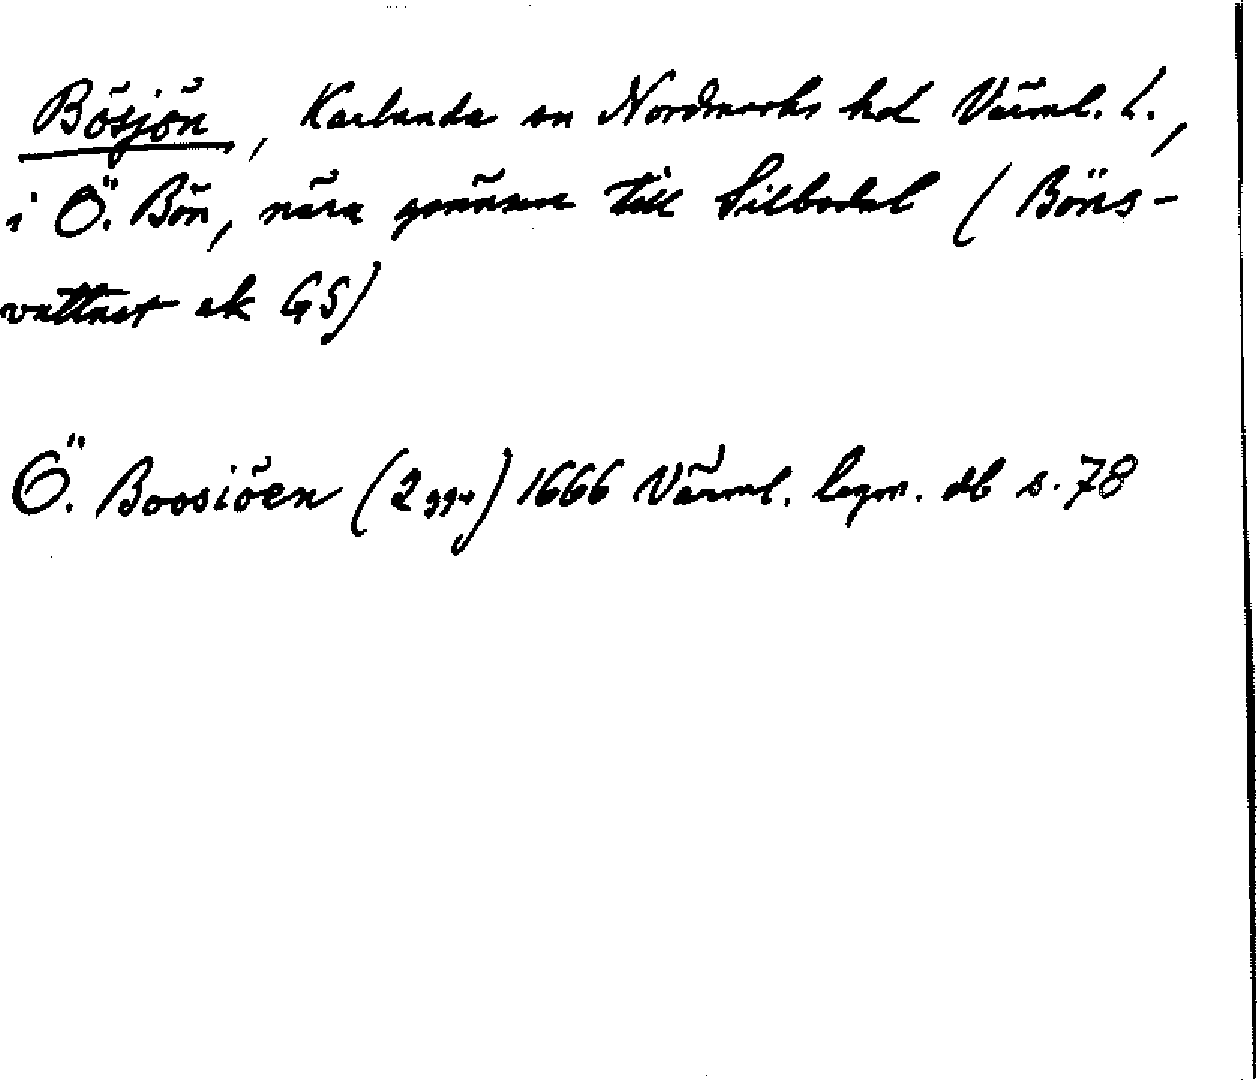 Bösjön, Karlanda sn Nordmarks hd Värml. L.,
i Ö. Bön, nära gränsen till Silbodal (Böns-
vattnet ek GS)
Ö. Boosiöen (2 ggr) 1666 Värml. lagm. db s. 78